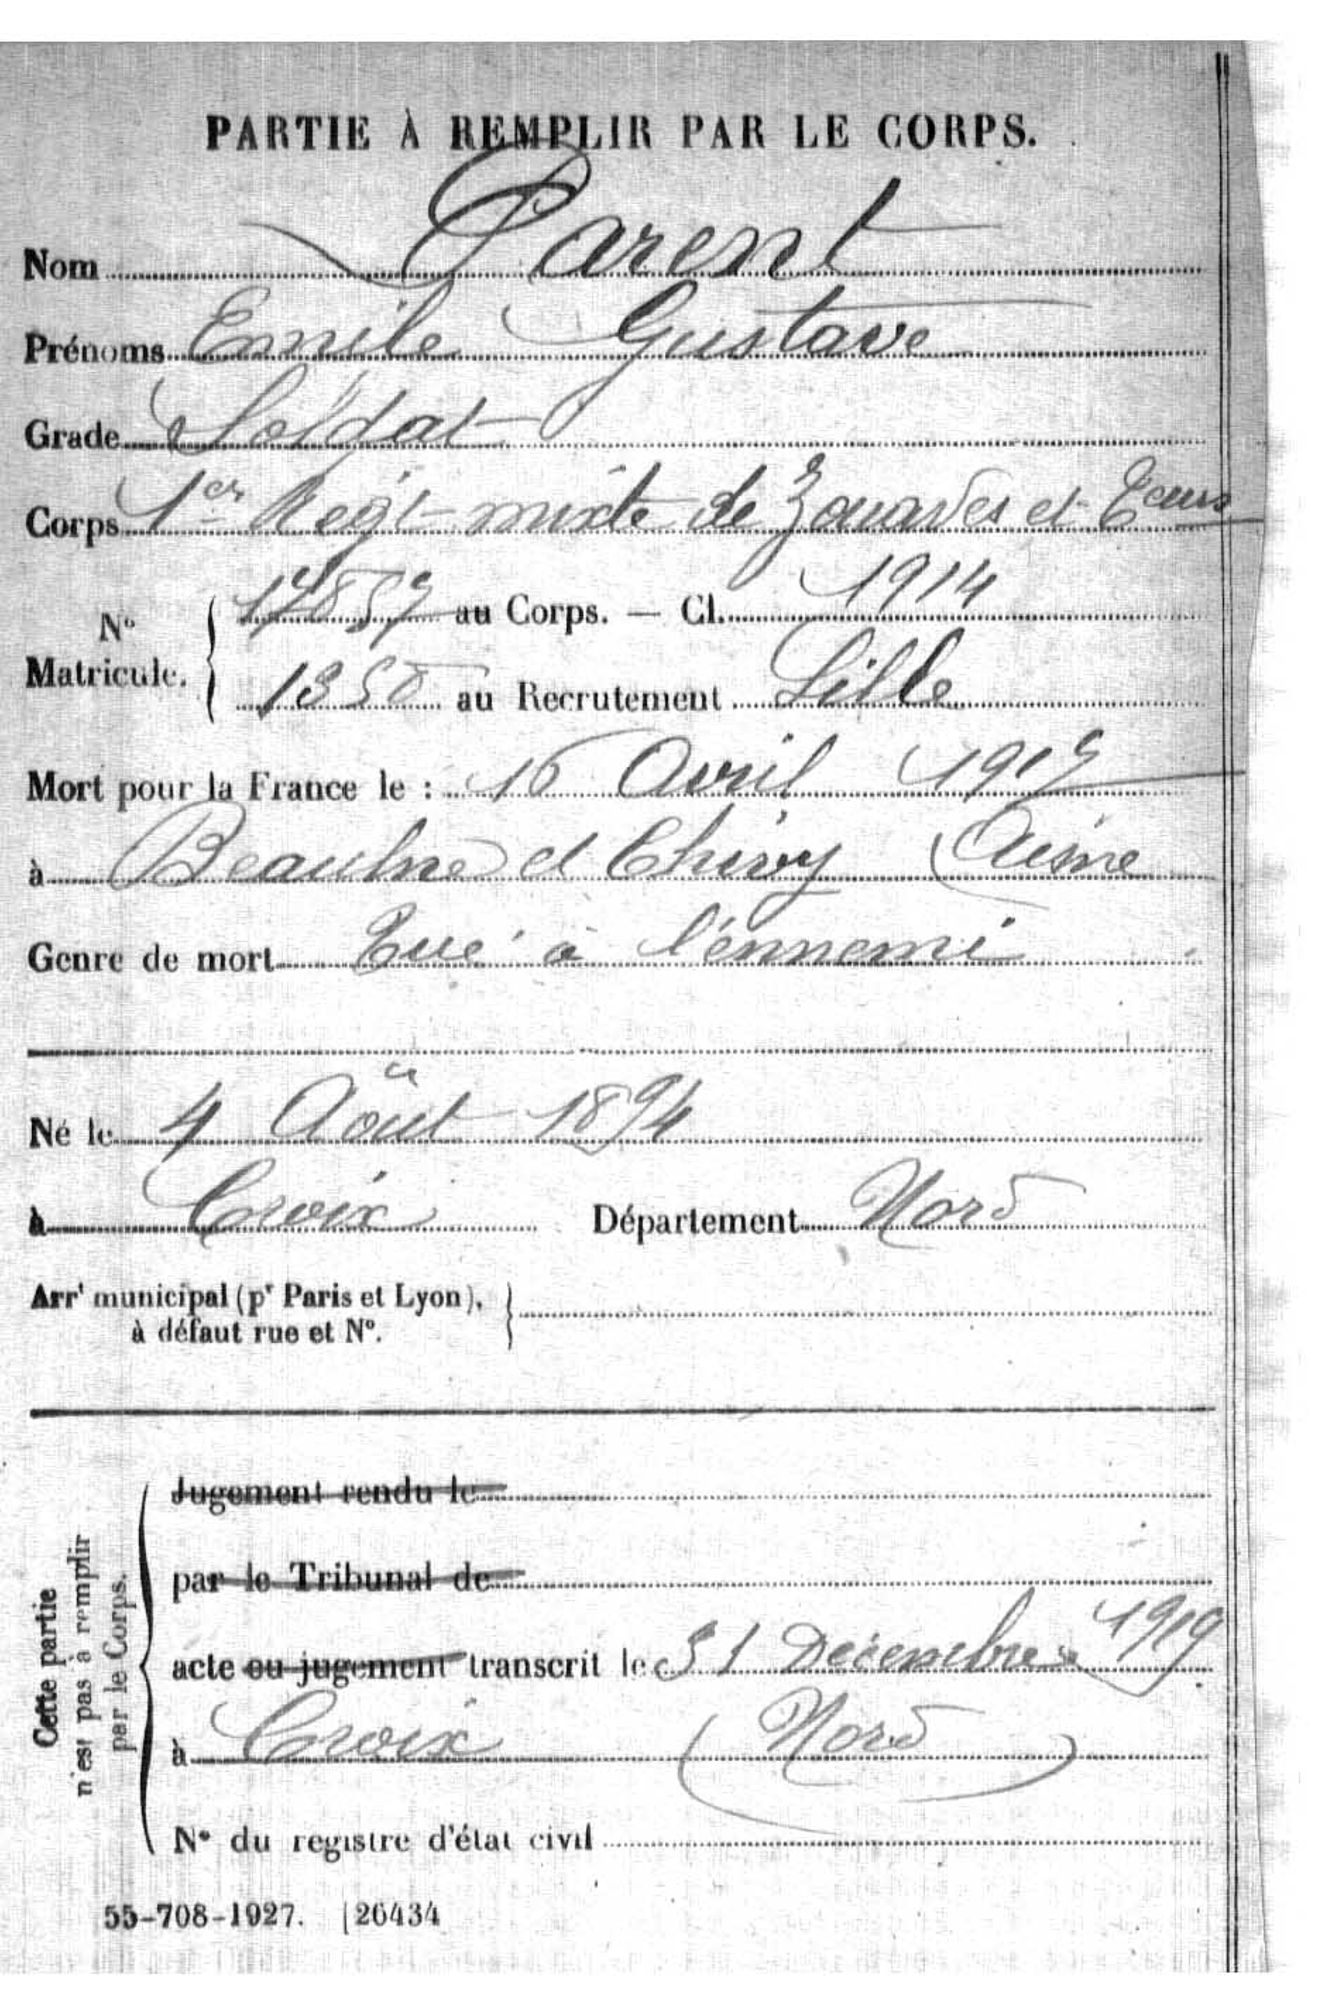 PARTIE À REMPLIR PAR LE CORPS.
Nom Parent
Prénoms Emile Gustave
Grade Soldat
Corps 1er Regt mixte de Zouaves et Teurs
N° Matricule. 17857 au Corps. — Cl. 1914
1350 au Recrutement Lille
Mort pour la France le : 16 Avril 1917
à Beaulne et Chivy (Aisne
Genre de mort Tué à l'ennemi
Né le 4 Août 1894
à Croix Département Nord
Arrt municipal (pr Paris et Lyon),
à défaut rue et N°.
Cette partie
n'est pas à remplir
par le Corps.
Jugement rendu le
par le Tribunal de
acte ou jugement transcrit le 31 Décembre 1919
à Croix (Nord)
N° du registre d'état civil
55-708-1927. |26434